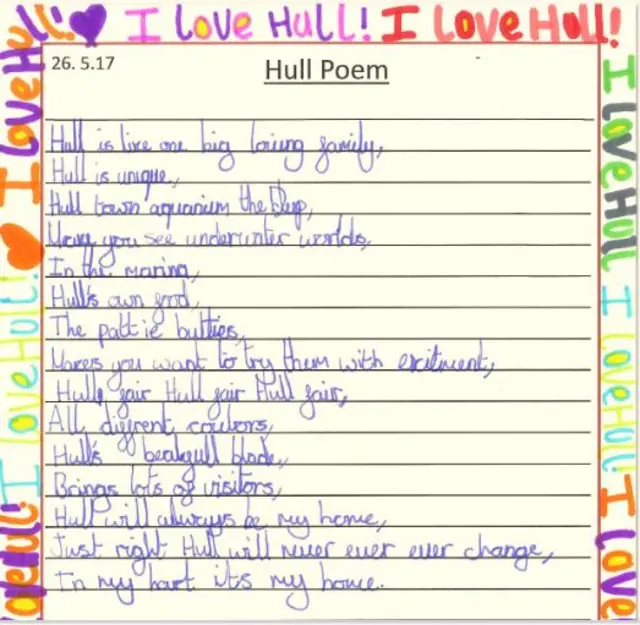 I love Hull! I love Hull!
26. 5.17
Hull Poem
Hull is like one big loving family,
Hull is unique,
Hull town aquarium the Deep,
you see underwater worlds,
In the marina,
Hull's own food,
The pattie butties,
Makes you want to try them with excitment,
Hull fair Hull fair Hull fair,
All diffrent coulors,
Hull's blade,
Brings lots of visitors,
Hull will always be my home,
Just right Hull will never ever ever change,
In my hart its my home.
I love Hull! I love Hull! I love
I love Hull! I love Hull! I love Hull!